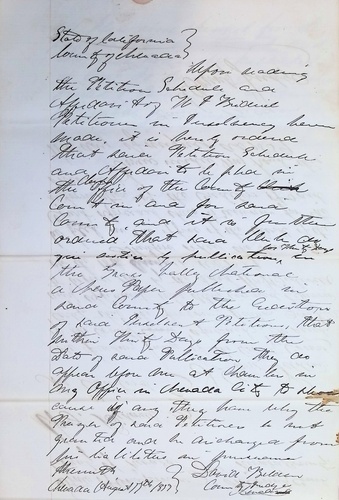 State of California }
County of Nevada }
Upon reading
the Petition Schedule and
Affidavit of W
Petitioner in Insolvency herein
made, it is hereby ordered
that said Petition Schedule
and Affidavit be filed in
the office of the County
Court in and for said
County and it is further
ordered that said Clerk do
give notice by publication, in
the Grass Valley National
a News Paper published in
said County to the Creditors
of said Insolvent Petitioner, that
within Thirty Days from the
Date of said Publication they do
appear before me at Chambers in
my Office in Nevada City to show
cause if any they have why the
Prayer of said Petitioner be not
granted and be discharged from
his liabilities in pursuance
thereunto } David Belden
Nevada August 17th 1857 } County Judge